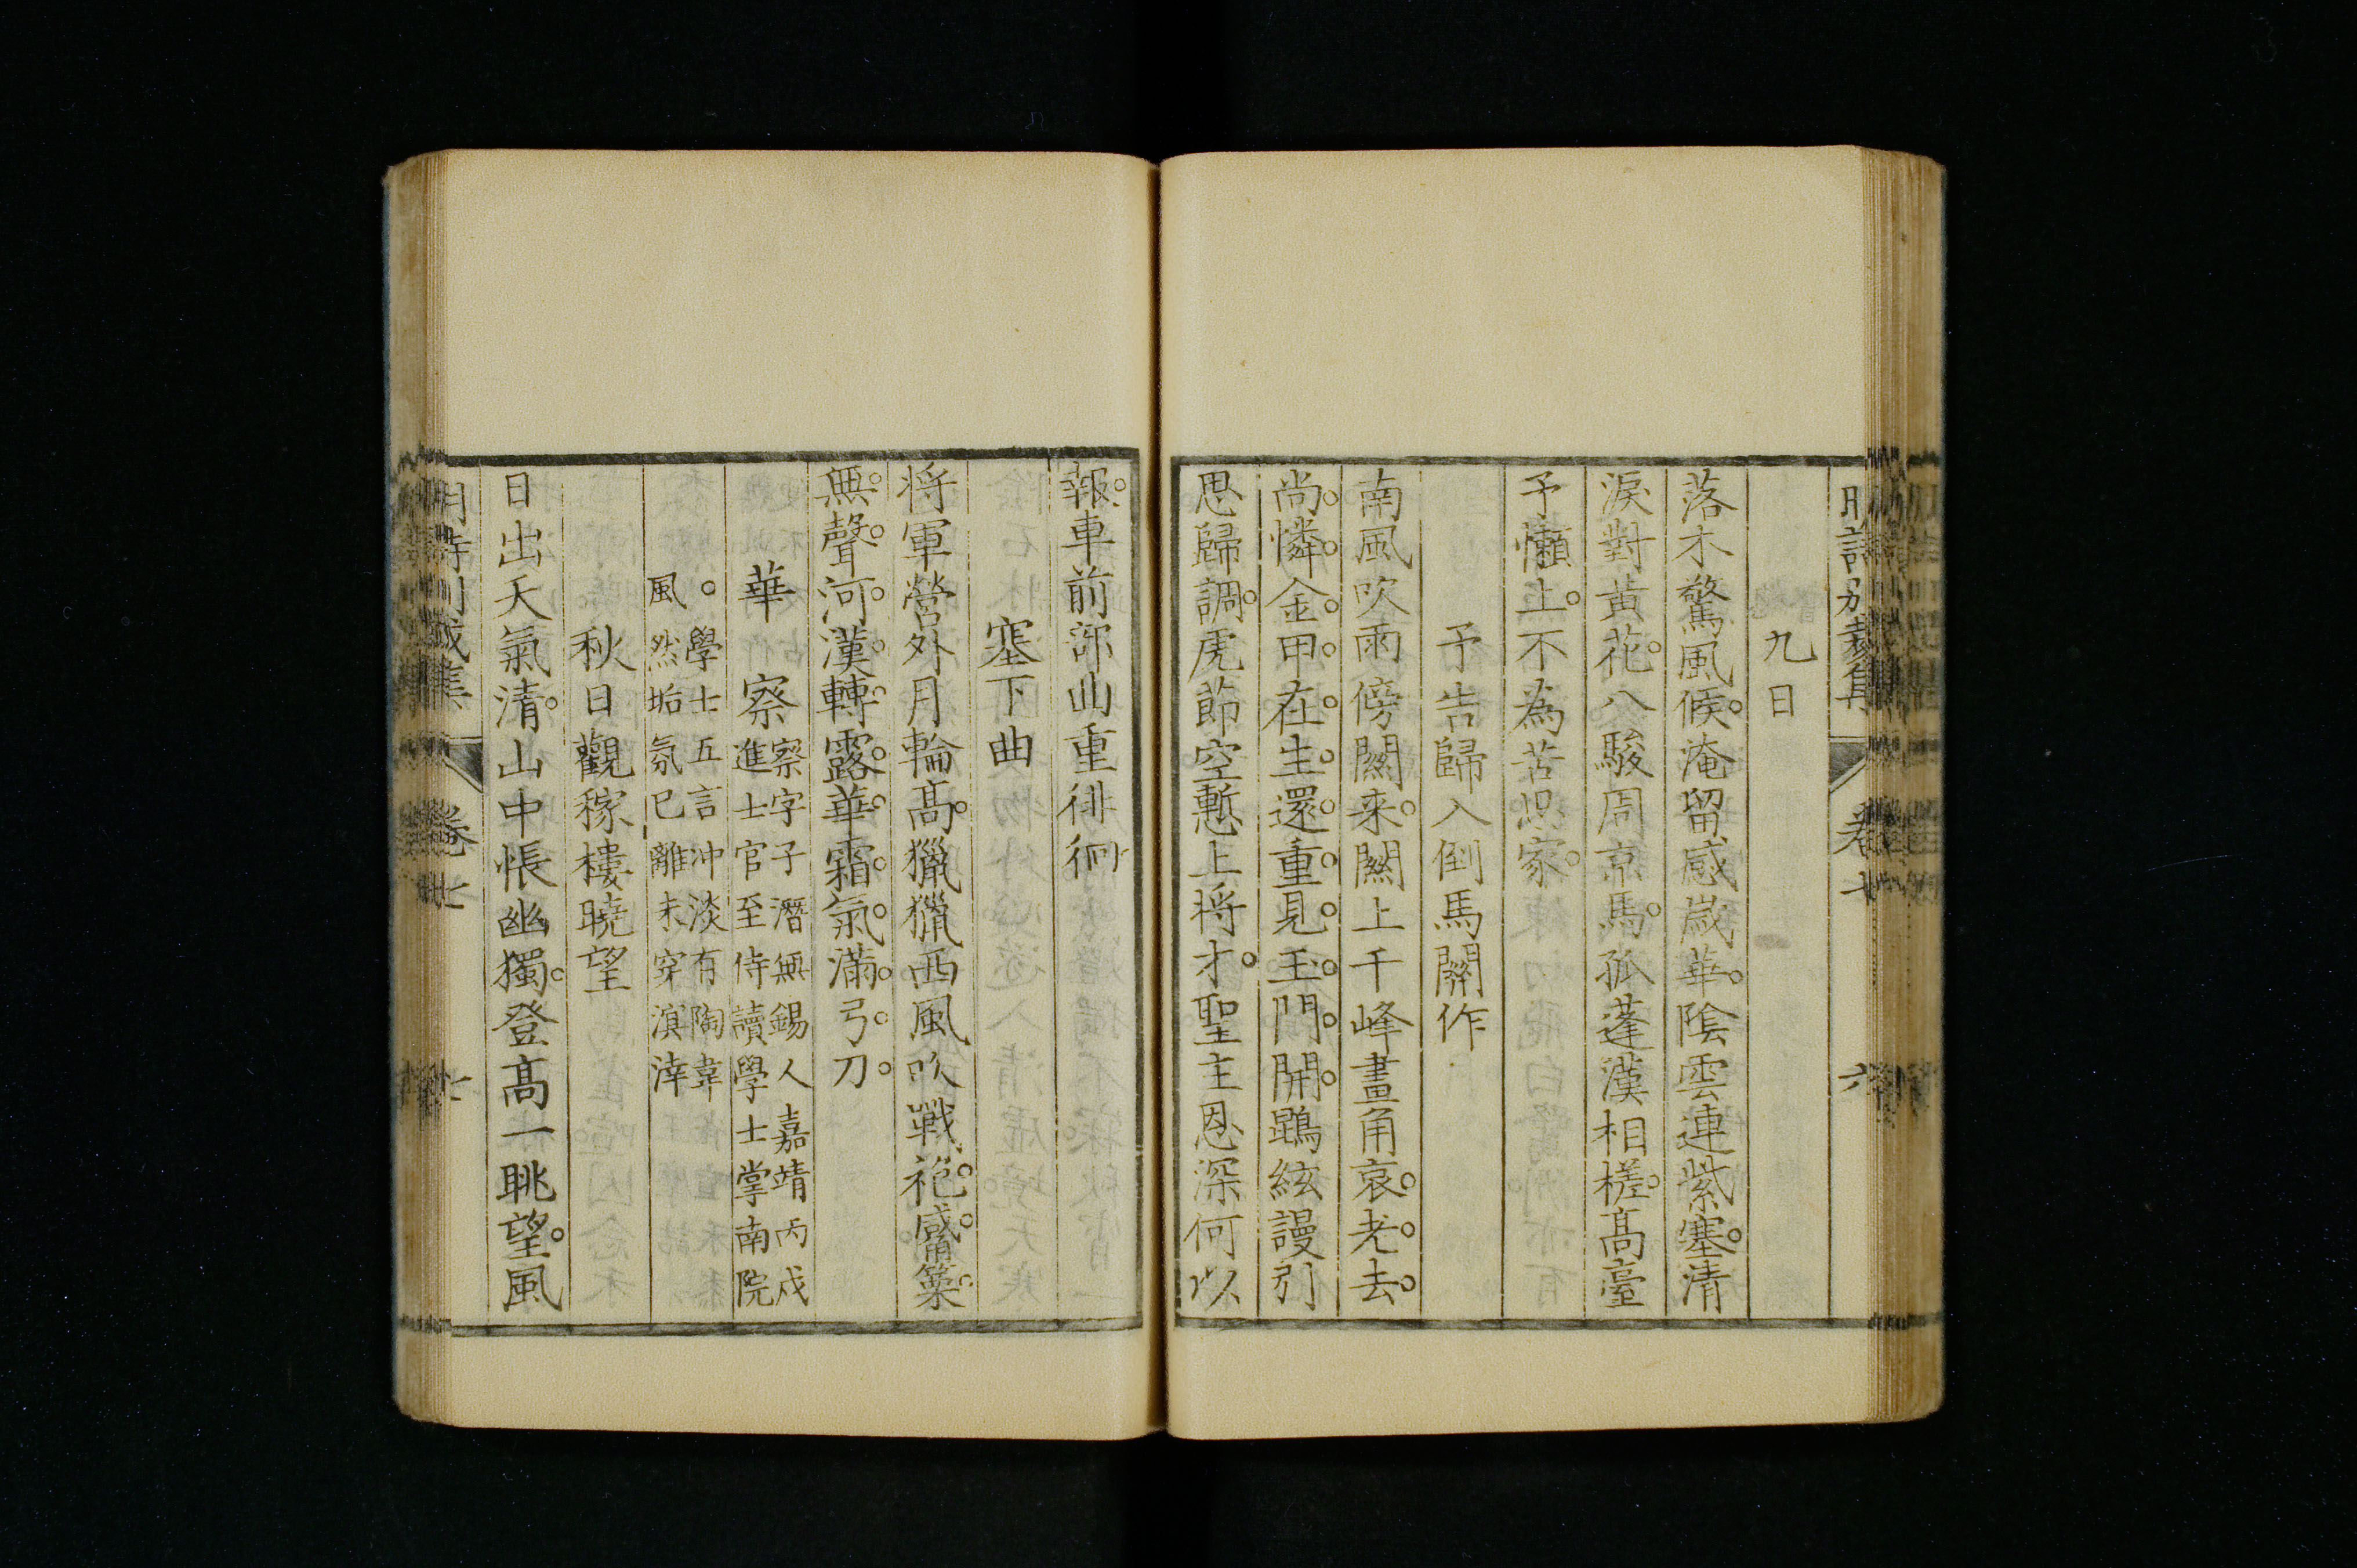 明詩別裁集 卷七 六
九日
落木驚風候淹留感嵗華隂雲連紫塞清
淚對黃花八駿周京馬孤蓬漢相槎髙臺
予懶上不為苦思家
予告歸入倒馬關作
南風吹雨傍關来關上千峰畫角哀老去
尚憐金甲在生還重見玉門開鵾絃謾引
思歸調虎節空慙上將才聖主恩深何以
報車前部曲重徘徊
塞下曲
將軍營外月輪髙獵獵西風吹戰袍觱篥
無聲河漢轉露華霜氣滿弓刀
華察
察字子潛無錫人嘉靖丙戌
進士官至侍讀學士掌南院
○學士五言冲淡有陶韋
風然垢氛已離未穿溟涬
秋日觀稼樓曉望
日出天氣清山中悵幽獨登髙一眺望風
明詩別裁集 卷七